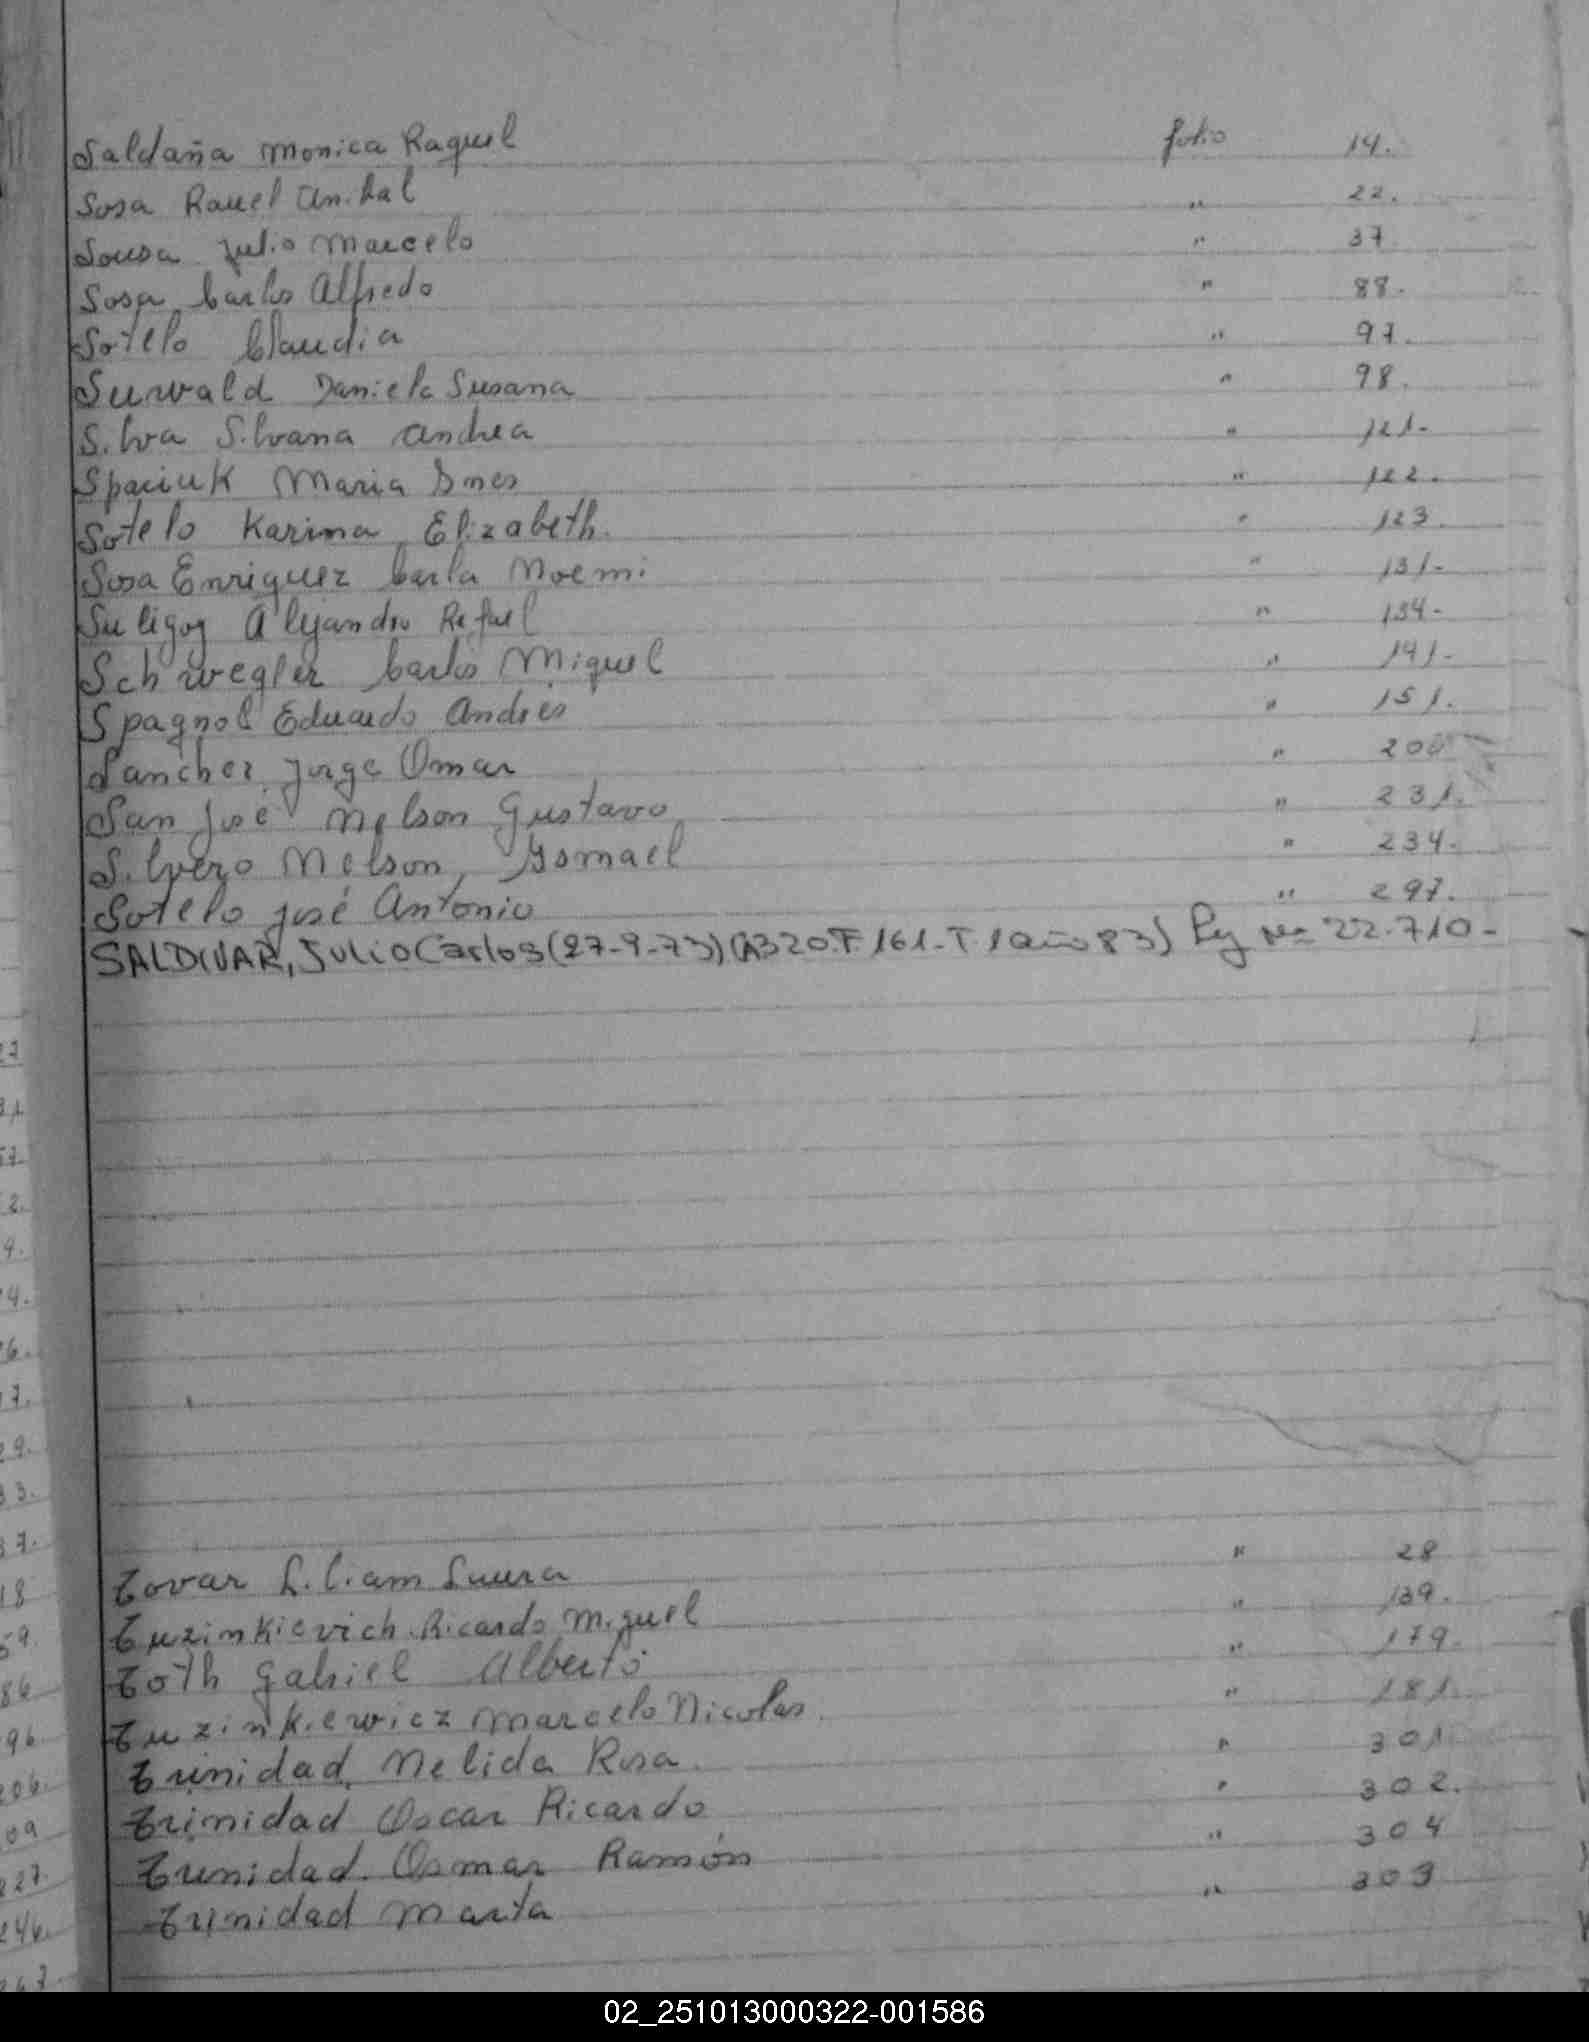 Saldaña Monica Raquel folio 14.
Sosa Rauel Anibal " 22.
Sousa Julio Marcelo " 37
Sosa Carlos Alfredo " 88.
Sotelo Claudia " 97.
Surwald Daniela Susana " 98.
Silva Silvana Andrea " 121.
Spaciuk Maria Ines " 122.
Sotelo Karina Elizabeth. " 123.
Sosa Enriquez Carla Noemi " 131.
Suligoy Alejandro Rafael " 134.
Schwegler Carlos Miguel " 141.
Spagnol Eduardo Andrés " 151.
Sanchez Jorge Omar " 200
San José Nelson Gustavo " 231.
Silvero Nelson Ysmael " 234.
Sotelo José Antonio " 297.
SALDIVAR, Julio Carlos (27-9-73) (A320.F.161-T.1 año 83) Ley Nº 22.710-
27
31
57
2.
9.
4.
6.
7.
29.
33.
37.
18
59.
86
96
206.
09
227.
246.
267.
Tovar Liliam Laura " 28
Tuzinkievich Ricardo Miguel " 139.
Toth Gabriel Alberto " 179.
Tuzinkiewicz Marcelo Nicolas. " 181.
Trinidad, Nelida Rosa. " 301.
Trinidad Oscar Ricardo " 302.
Trinidad. Osmar Ramón " 304
Trinidad Marta " 303
02_251013000322-001586